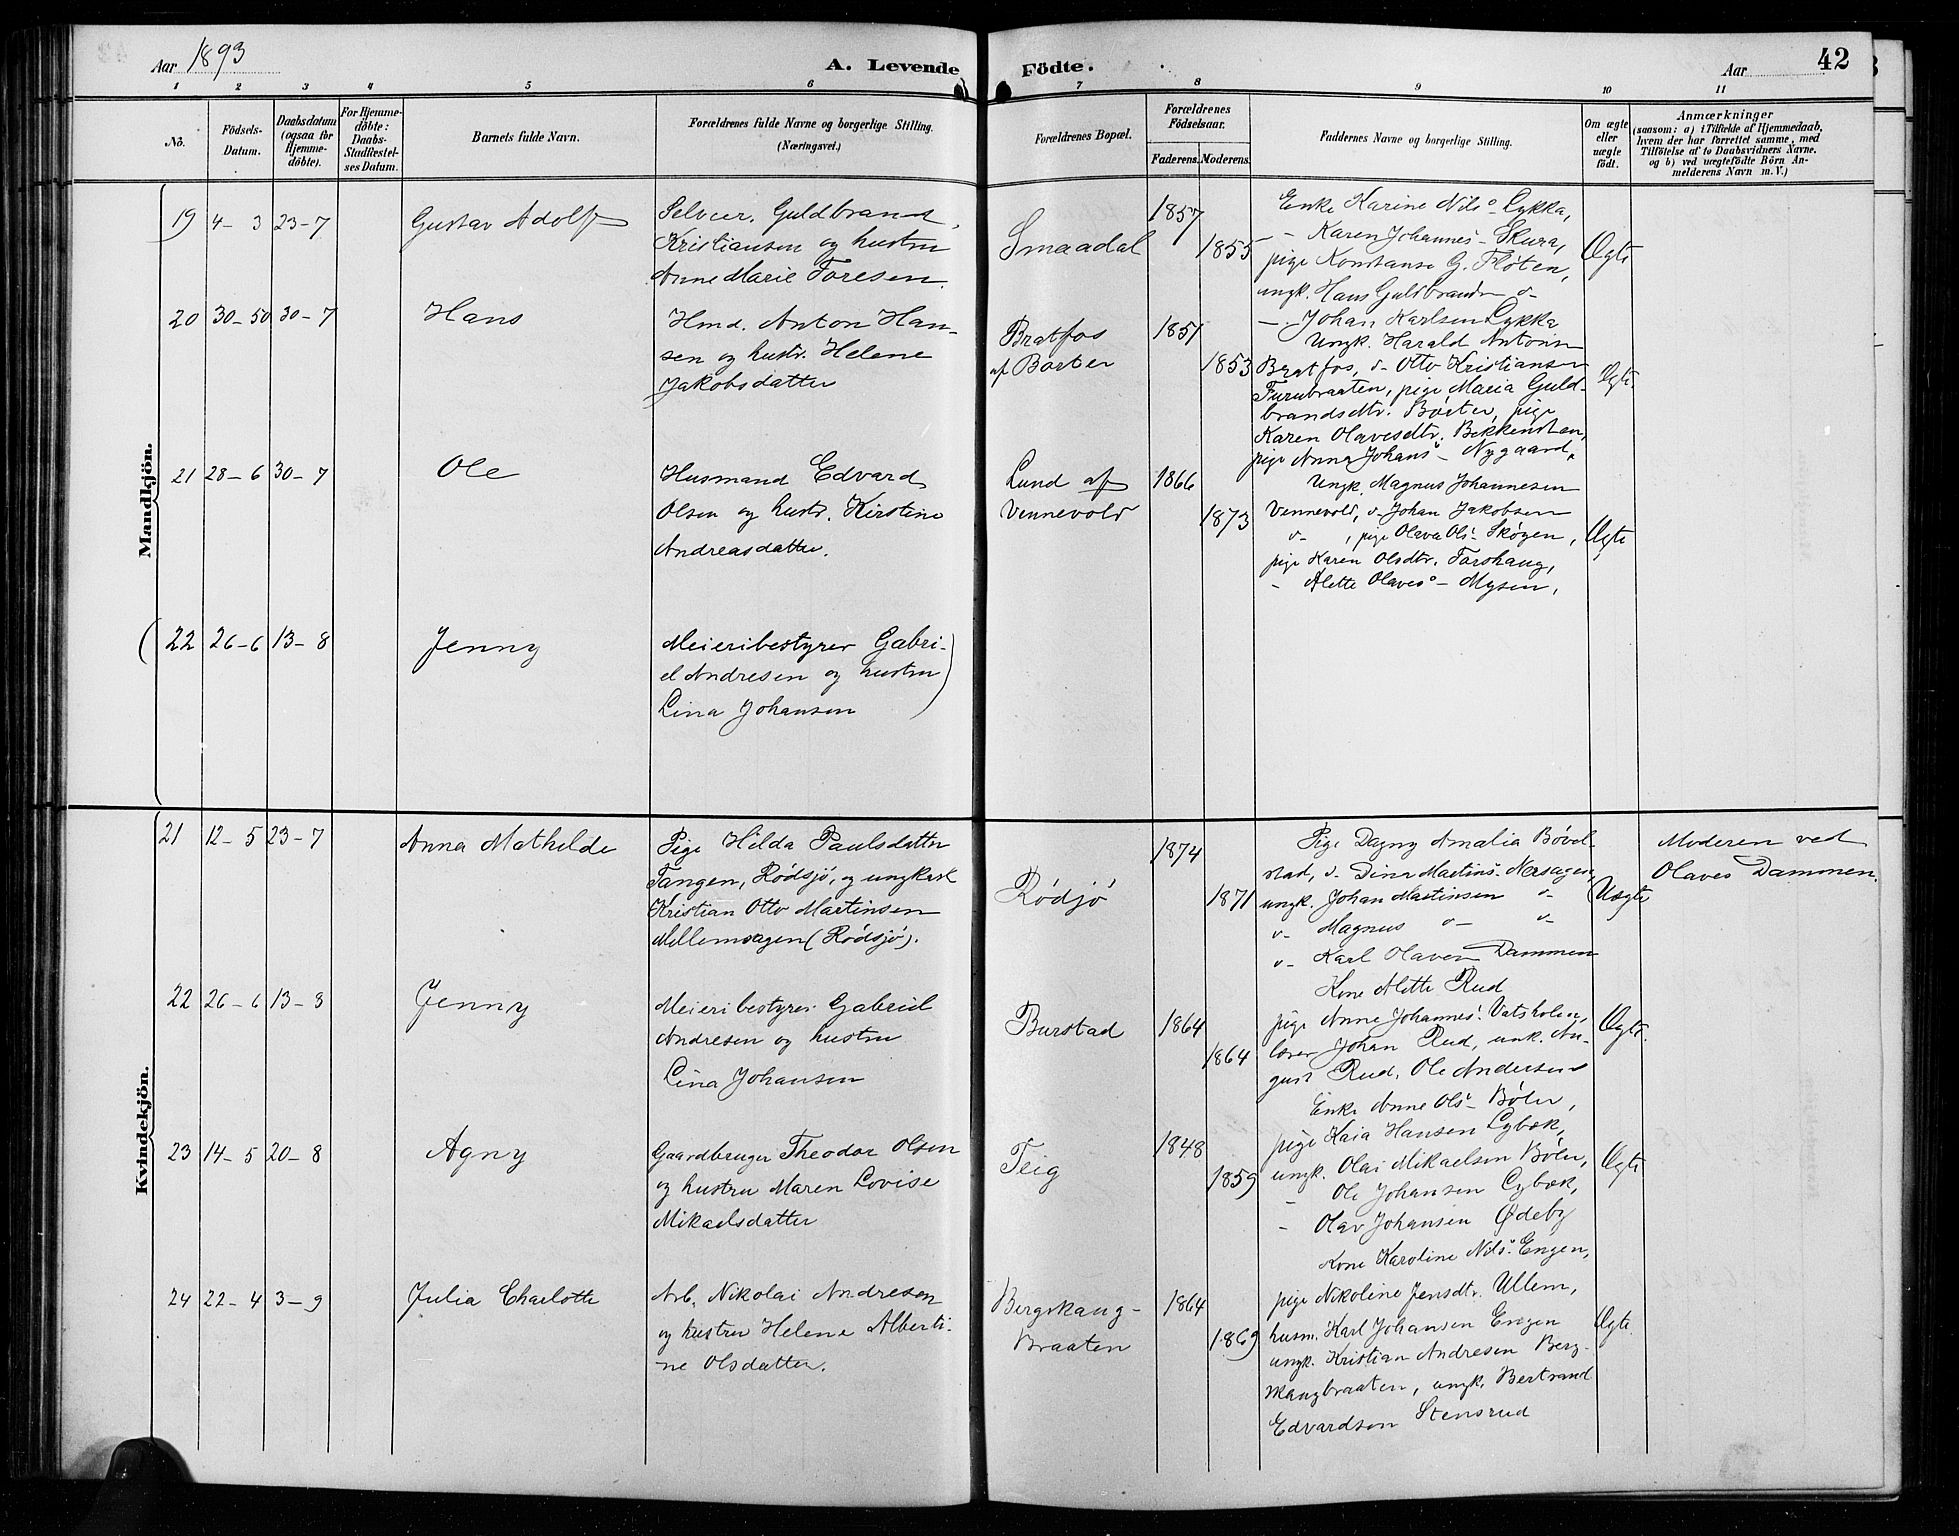 Aar 1893
A. Levende Födte.
Aar
42
1 2 3 4 5 6 7 8 9 10 11
No.
Födsels-Datum.
Daabsdatum (ogsaa for Hjemmedöbte).
For Hjemmedöbte: Daabs-Stadfæstelses Datum.
Barnets fulde Navn.
Forældrenes fulde Navne og borgerlige Stilling.
(Næringsvei.)
Forældrenes Bopæl.
Forældrenes Födselsaar.
Faderens. Moderens.
Faddernes Navne og borgerlige Stilling.
Om ægte eller uægte födt.
Anmærkninger
(saasom: a) i Tilfælde af Hjemmedaab,
hvem der har forrettet samme, med
Tilföielse af to Daabsvidners Navne.
og b) ved uægtefödte Börn Anmelderens Navn m. V.)
Mandkjön.
19 4-3 23-7 Gustav Adolf
Selveier. Guldbrand
Kristiansen og hustru
Anne Marie Toresen.
Smaadal
1857
1855
Enke Karine Nils°- Lykka,
- Karen Johannes°- Skura,
pige Konstanse G. Fløten,
ungk. Hans Guldbrandsn d-
-. Johan Karlsen Lykka
Ægte
20 30-50 30-7 Hans
Hmd. Anton Han-
sen og hustr. Helene
Jakobsdatter
Bratfos
af Børter
1851
1853
Ungk. Harald Antonsn
Bratfos, d- Otto Kristiansen
Furubraaten, pige Maria Guld-
brandsdtr. Børter, pige
Karen Olavesdtr. Bekkensten,
pige Anna Johans°- Nygaard,
Ægte
21 28-6 30-7 Ole
Husmand Edvard
Olsen og hustr. Kirstine
Andreasdatter.
Lund af
Vennevold
1866
1873
Ungk. Magnus Johannesen
Vennevold, d- Johan Jakobsen
d- , pige Olava Ols°- Skogen,
pige Karen Olsdtr. Torshaug,
- Alette Olaves°- Mysen,
Ægte
(22 26-6 13-8 Jenny
Meieribestyrer Gabri-
el Andresen og hustru
Lina Johansen)
Kvindekjön.
21 12-5 23-7 Anna Mathilde
Pige Hilda Paulsdatter
Tangen, Rødsjø, og ungkarl
Kristian Otto Martinsen
Mellemsagen (Rødsjø).
Rødsjø
1874
1871
Pige Dagny Amalia Bøvel-
stad, d- Dina Martins°- Norsagen,
ungk. Johan Martinsen d-
d- Magnus d- d-
d- Karl Olaven Dammen
Uægte
Moderen ved
Olaves Dammen.
22 26-6 13-8 Jenny
Meieribestyrer Gabriel
Andresen og hustru
Lina Johansen
Burstad
1864
1864
Kone Alette Rud
pige Anne Johannes°- Vatsholen,
lærer Johan Rud, unk. Au-
gust Rud, Ole Andersen
Ægte.
23 14-5 20-8 Agny
Gaardbruger Theodor Olsen
og hustru Maren Lovise
Mikaelsdatter
Teig
1848
1859
Enke Anne Ols°- Bøler,
pige Kaia Hansen Lybæk,
ungk. Olai Mikaelsen Bøler,
- Ole Johansen Lybæk,
- Olav Johansen Ødeby
Ægte
24 22-4 3-9 Julia Charlotte
Arb. Nikolai Andresen
og hustru Helene Alberti-
ne Olsdatter.
Bergskaug-
Braaten
1864
1869
Kone Karoline Nils°- Engen,
pige Nikoline Jensdtr. Ullem,
husm. Karl Johansen Engen
ungk. Kristian Andresen Berg-
skaugbraaten, ungk. Bertrand
Edvardsen Stensrud
Ægte.